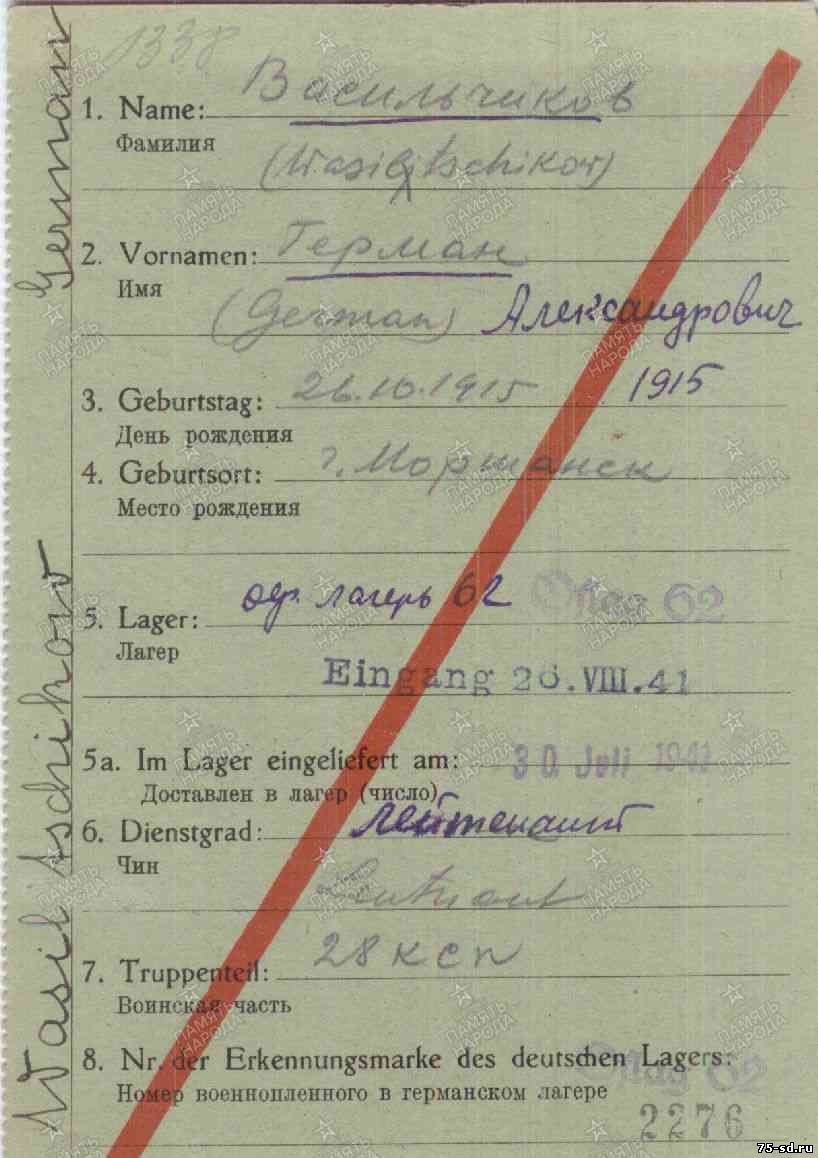 1338
1. Name: Васильчиков
Фамилия
(Wasiltschikow)
2. Vornamen: Герман
Имя
(German) Александрович
3. Geburtstag: 26.10.1915 1915
День рождения
4. Geburtsort: г. Моршанск
Место рождения
5. Lager: оф. лагерь 62 Oflag 62
Лагер
Eingang 26.VIII.41
5a. Im Lager eingeliefert am: 30. Juli 1941
Доставлен в лагер (число)
6. Dienstgrad: лейтенант
Чин
Leutnant
7. Truppenteil: 28 ксп
Воинская часть
8. Nr. der Erkennungsmarke des deutschen Lagers:
Номер военнопленного в германском лагере
Oflag 62
2276
Wasiltschikow German
ПАМЯТЬ НАРОДА
75-sd.ru